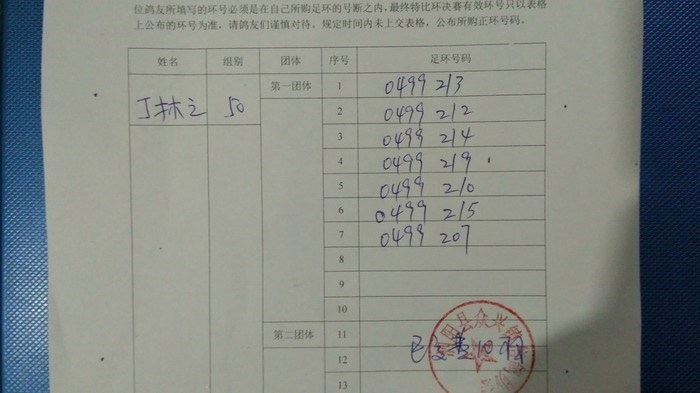 位鸽友所填写的环号必须是在自己所购足环的号断之内,最终特比环决赛有效环号只以表格
上公布的环号为准,请鸽友们谨慎对待。规定时间内未上交表格,公布所购正环号码。
姓名 组别 团体 序号 足环号码
丁林之 50 第一团体 1 0499 213
2 0499 212
3 0499 214
4 0499 219
5 0499 210
6 0499 215
7 0499 207
8
9
10
第二团体 11
已交费
12
13
阳县众兴镇